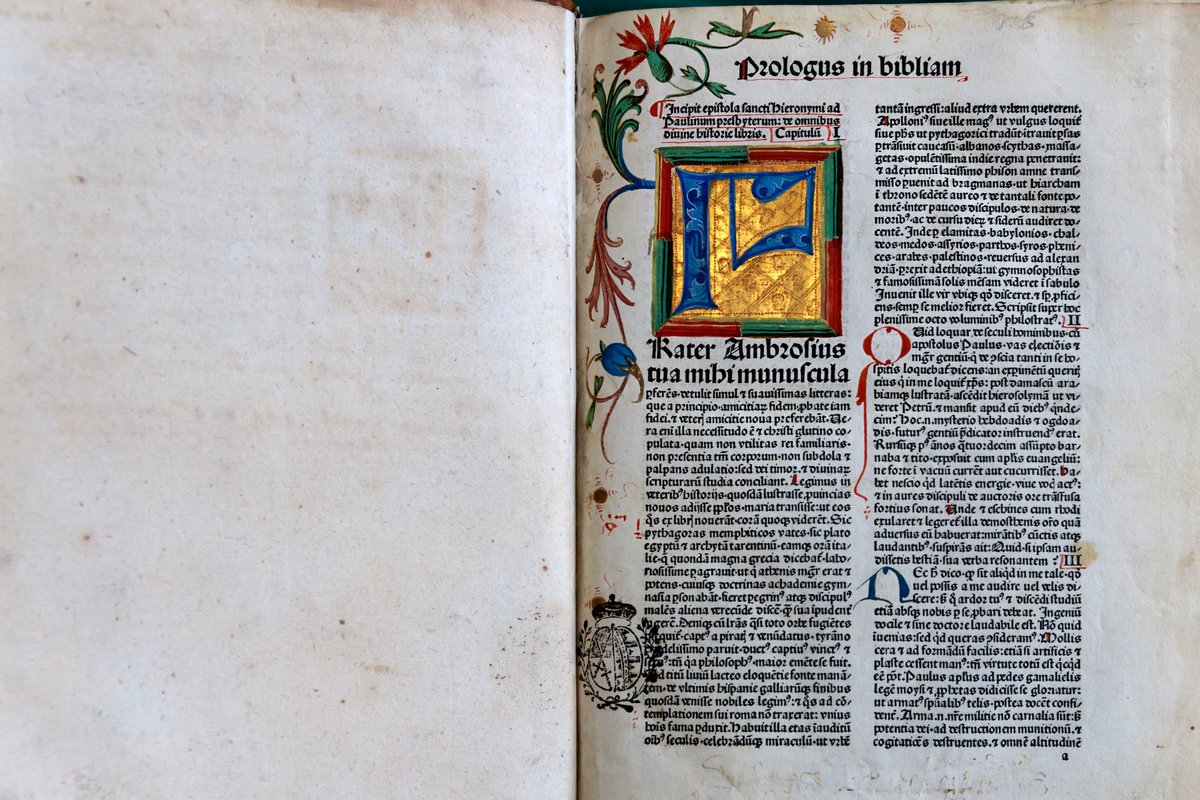 Prologus in bibliam
Incipit epistola sancti Hieronymi ad
Paulinum presbyterum: de omnibus
divine historie libris. Capitulū I
F
Rater Ambrosius
tua mihi munuscula
ꝑferēs·detulit simul ⁊ suavissimas litteras:
que a principio·amicitiaꝝ fidem ꝓbate iam
fidei·⁊ veteꝝ amicitie nova preferebāt. Ue-
ra eni illa necessitudo ē ⁊ christi glutino co-
pulata·quam non vtilitas rei familiaris·
non presentia tm̄ corporum·non subdola ⁊
palpans adulatio: sed dei timor·⁊ divinaꝝ
scripturarū studia conciliant. Legimus in
veterib⁹ historijs·quosdā lustrasse ꝓvincias
novos adijsse pp̄los·maria transisse: ut eos
q̄s ex libꝝ noverāt·corā quoqꝫ viderēt. Sic
pythagoras memphiticos vates·sic plato
egyptū ⁊ archytā tarentinū·eamqꝫ orā ita-
lie·q̄ quondā magna grecia dicebat̄·labo-
riosissime ꝑagravit: ut q̄ athenis mḡr erat ⁊
potens·cuiusqꝫ doctrinas achademie gym-
nasia ꝑsonabāt·fieret ꝑegrin⁹ atqꝫ discipul⁹
malēs aliena verecūde discē·q̄ꝫ sua ipudent̄
gerē. Deniqꝫ cū lr̄as q̄si toto orbe fugiētes
capt⁹ a piraꝭ ⁊ venūdatus·tyrāno
crudelissimo paruit·duct⁹ captiv⁹ vinct⁹ ⁊
tn̄ qa philosoph⁹·maior emēte se fuit.
Ad titū liviū lacteo eloquētie fonte manā-
tem·de vltimis hispanie galliarūqꝫ finibus
quosdā venisse nobiles legim⁹: ⁊ q̄s ad cō-
templationem sui roma nō traxerat: vnius
hoīs fama ꝑduxit. Habuit illa etas īauditū
oīb⁹ seculis·celebrādūqꝫ miraculū·ut vrbē
tantā ingressi: aliud extra vrbem quererent.
Apolloni⁹ sive ille mag⁹ ut vulgus loquit̄
sive phs̄ ut pythagorici tradūt·itravit ꝑsas
ꝑtrāsivit caucasū·albanos·scythas·massa-
getas·opulētissima indie regna penetravit:
⁊ ad extremū latissimo phison amne trans-
misso ꝑvenit ad bragmanas·ut hiarcham
ī throno sedētē aureo ⁊ de tantali fonte po-
tantē·inter paucos discipulos·de natura·de
morib⁹·ac de cursu dieꝝ ⁊ siderū audiret do-
centē. Inde ꝑ elamitas·babylonios·chal-
deos·medos·assyrios·parthos·syros·pheni-
ces·arabes·palestinos·reversus ad alexan-
driā·ꝑrexit ad ethiopiā: ut gymnosophistas
⁊ famosissimā solis mēsam videret ī sabulo
Invenit ille vir vbiqꝫ qd̄ disceret·⁊ sp̄ ꝓfici-
ens·semꝑ se melior fieret. Scripsit super hoc
plenissime octo voluminib⁹ philostrat⁹. II
Quid loquar de seculi hominibus·cū
apostolus Paulus·vas electiōis ⁊
mḡr gentiū·q̄ de ꝯscia tanti in se ho-
spitis loquebat̄ dicens: an exꝑimētū queritꝭ
eius q̄ in me loquit̄ xp̄s: post damascū ara-
biamqꝫ lustratā·ascēdit hierosolymā ut vi-
deret Petrū·⁊ mansit apud eū dieb⁹ qnde-
cim? Hoc·n·mysterio hebdoadis ⁊ ogdoa-
dis·futur⁹ gentiū p̄dicator instruend⁹ erat.
Rursūqꝫ p⁹ ānos q̄tuordecim assūpto bar-
naba ⁊ tito·exposuit cum apl̄is evangeliū:
ne forte ī vacuū currēt aut cucurrisset. Ha-
bet nescio qd latētis energie·vive voc̄ act⁹:
⁊ in aures discipuli de auctoris ore trāsfusa
fortius sonat. Unde ⁊ eschines cum rhodi
exularet ⁊ legeret̄ illa demosthenis or̄o quā
adversus eū habuerat: mirātib⁹ cūctis atqꝫ
laudantib⁹·suspirās ait: Quid·si ipsam au-
dissetis bestiā·sua verba resonantem? III
Nec h̄ dico·q̄ꝫ sit aliqd in me tale·qd
vel possis a me audire vel velis di-
scere: sꝫ q̄ ardor tu⁹ ⁊ discēdi studiū
etiā absqꝫ nobis ꝑ se ꝓbari debeat. Ingeniū
docile ⁊ sine doctore laudabile est. Nō quid
īvenias: sed qd queras ꝯsideram⁹. Mollis
cera ⁊ ad formādū facilis: etiā si artificis ⁊
plaste cessent man⁹: tn̄ virtute totū est qcqd
eē pōt. Paulus apl̄us ad pedes gamalielis
legē moysi ⁊ ꝓphetas didicisse se gloriatur:
ut armat⁹ sp̄ualib⁹ telis·postea docēt confi-
denē. Arma·n·nr̄e militie nō carnalia sūt: sꝫ
potentia dei·ad destructionem munitionū·⁊
cogitatiōes destruentes·⁊ omnē altitudinē
a